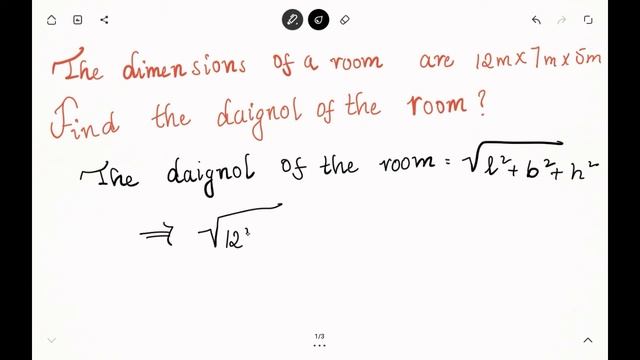 The dimensions of a room are 12m×7m×5m
Find the daignol of the room?
The daignol of the room = √l²+b²+h²
⇒ √12²
1/3